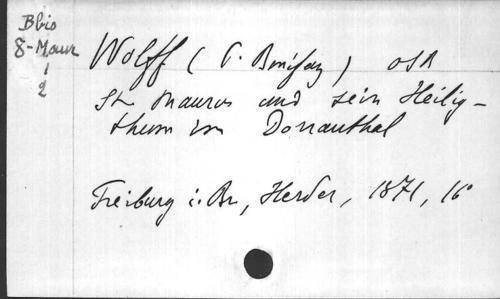 Bbio
8-Maur
1
2
Wolff (P. Bonifaz) OSB
St Maurus und sein Heilig-
thum im Donauthal
Freiburg i. Br, Herder, 1871, 16°